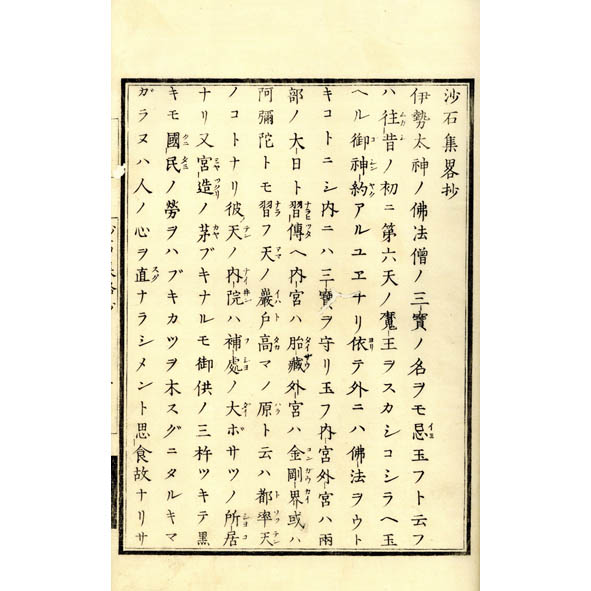 沙石集畧抄
伊勢太神ノ佛法僧ノ三寶ノ名ヲモ忌玉フト云フ
ハ往昔ノ初ニ第六天ノ魔王ヲスカシコシラヘ玉
ヘル御神約アルユヱナリ依テ外ニハ佛法ヲウト
キコトニシ内ニハ三寶ヲ守リ玉フ内宮外宮ハ兩
部ノ大日ト習傳ヘ内宮ハ胎藏外宮ハ金剛界或ハ
阿彌陀トモ習フ天ノ巖戸高マノ原ト云ハ都率天
ノコトナリ彼天ノ内院ハ補處ノ大ボサツノ所居
ナリ又宮造ノ茅ブキナルモ御供ノ三杵ツキテ黒
キモ國民ノ勞ヲハブキカツヲ木スグニタルキマ
ガラヌハ人ノ心ヲ直ナラシメント思食故ナリサ